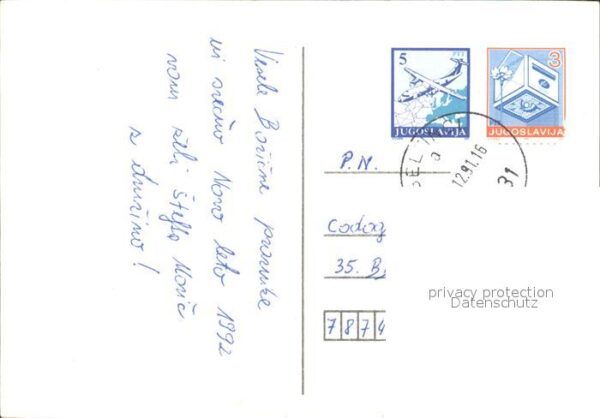 Vesele Božične praznike
in srečno Novo leto 1992
vam želi Štefka Novič
z družino!
5
PTT
JUGOSLAVIJA
3
PTT
JUGOSLAVIJA
12.91.16
P.N.
35. B
7874
privacy protection
Datenschutz